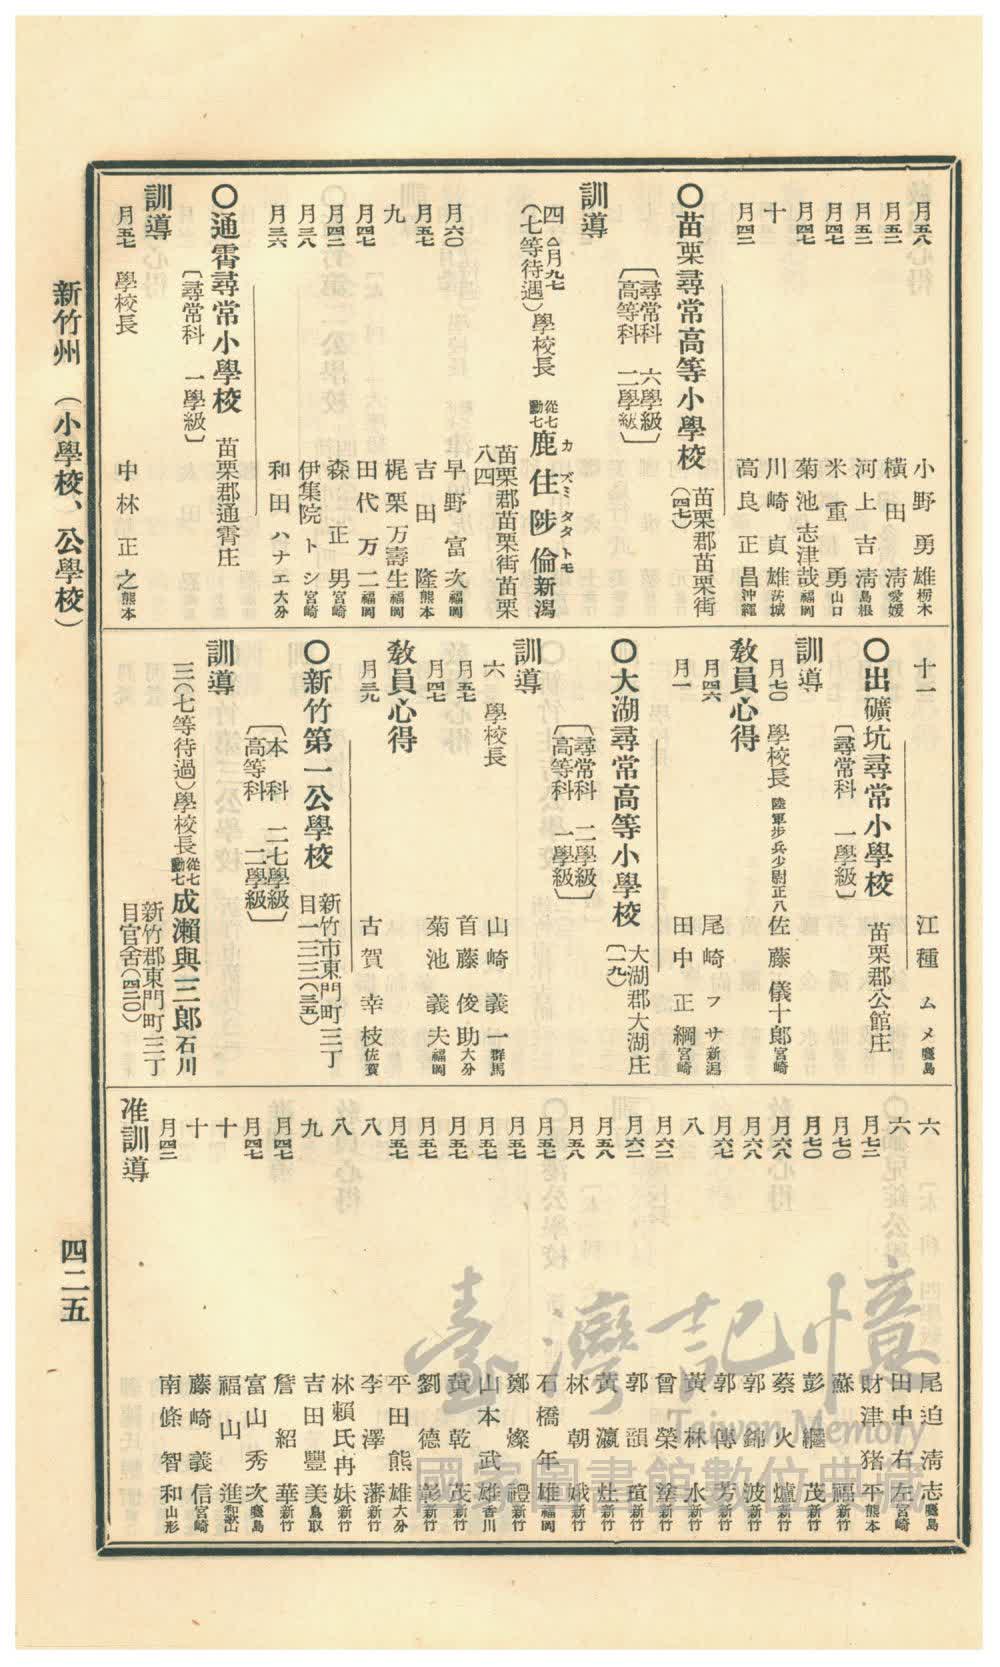 月五八 小野勇雄 栃木
月五二 橫田清 愛媛
月五二 河上吉淸 島根
月四七 米重勇 山口
月四七 菊池志津哉 福岡
十 川崎貞雄 茨城
月四二 高良正昌 沖繩
〇苗栗尋常高等小學校 苗栗郡苗栗街(四七)
〔尋常科 六學級
高等科 二學級〕
訓導
四 月九七
(七等待遇)學校長 從七勳七 鹿住陟倫 新潟
カズミタダトモ
苗栗郡苗栗街苗栗
八四
月六〇 早野富次 福岡
月五七 吉田隆 熊本
九 梶栗万壽生 福岡
月四七 田代万二 福岡
月四二 森正男 宮崎
月三八 伊集院トシ 宮崎
月三六 和田ハナエ 大分
〇通霄尋常小學校 苗栗郡通霄庄
〔尋常科 一學級〕
訓導
月五七 學校長 中林正之 熊本
十一 江種ムメ 鹿島
〇出礦坑尋常小學校 苗栗郡公館庄
〔尋常科 一學級〕
訓導
月七〇 學校長 陸軍步兵少尉正八 佐藤儀十郎 宮崎
敎員心得
月四六 尾崎フサ 新潟
月一 田中正綱 宮崎
〇大湖尋常高等小學校 大湖郡大湖庄(一九)
〔尋常科 二學級
高等科 一學級〕
訓導
六 學校長 山崎義一 群馬
月五七 首藤俊助 大分
月四七 菊池義夫 福岡
敎員心得
月三九 古賀幸枝 佐賀
〇新竹第一公學校 新竹市東門町三丁目一三三(三五)
〔本科 二七學級
高等科 二學級〕
訓導
三(七等待過)學校長 從七勳七 成瀨與三郎 石川
新竹郡東門町三丁
目官舍(四二〇)
六 尾迫淸志 鹿島
六 田中右左 宮崎
月七三 財津猪平 熊本
月七〇 蘇福 新竹
月七〇 彭繼茂 新竹
月六八 蔡火爐 新竹
月六八 郭錦波 新竹
月六七 郭傳芳 新竹
八 黃林水 新竹
月六二 曾榮塗 新竹
月六二 郭韻瑄 新竹
月五八 黃瀛灶 新竹
月五八 林朝娥 新竹
月五七 石橋年雄 福岡
月五七 鄭燦禮 新竹
月五七 山本武雄 香川
月五七 黃乾茂 新竹
月五七 劉德彰 新竹
月五七 平田熊雄 大分
八 李澤藩 新竹
八 林賴氏冉妹 新竹
九 吉田豐美 鳥取
月四七 詹紹華 新竹
月四七 富山秀次 鹿島
十 福山進 和歌山
十 藤崎義信 宮崎
月四二 南條智和 山形
准訓導
新竹州 (小學校、公學校)
四二五
臺灣記憶
Taiwan Memory
國家圖書館數位典藏